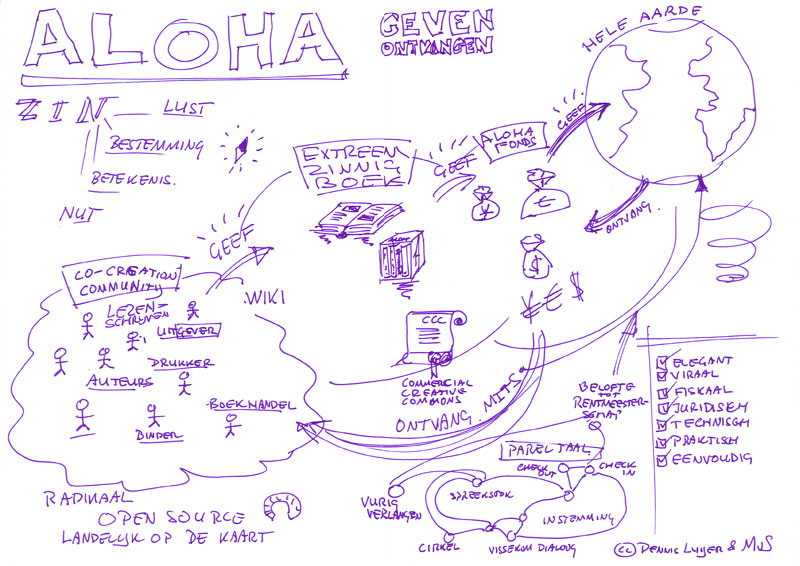 ALOHA
GEVEN
ONTVANGEN
HELE AARDE
ZIN
LUST
BESTEMMING
BETEKENIS.
NUT
EXTREEM
ZINNIG
BOEK
GEEF
ALOHA
FONDS
GEEF
GEEF
ONTVANG.
¥
€
$
¥ € $
CO-CREATION
COMMUNITY
.WIKI
LEZEN-
SCHRIJVEN
UITGEVER
DRUKKER
AUTEURS
BOEKHANDEL
BINDER
CCC
COMMERCIAL
CREATIVE
COMMONS
ONTVANG MITS
BELOFTE
TOT
RENTMEESTER-
SCHAP
ELEGANT
VIRAAL
FISKAAL
JURIDISCH
TECHNISCH
PRAKTISCH
EENVOUDIG
PARELTAAL
CHECK
OUT
CHECK
IN
SPREEKSTOK
INSTEMMING
VURIG
VERLANGEN
CIRKEL
VISSEKOM DIALOOG
RADIKAAL
OPEN SOURCE
LANDELIJK OP DE KAART
(CC) DENNIS LUIJER & MVS